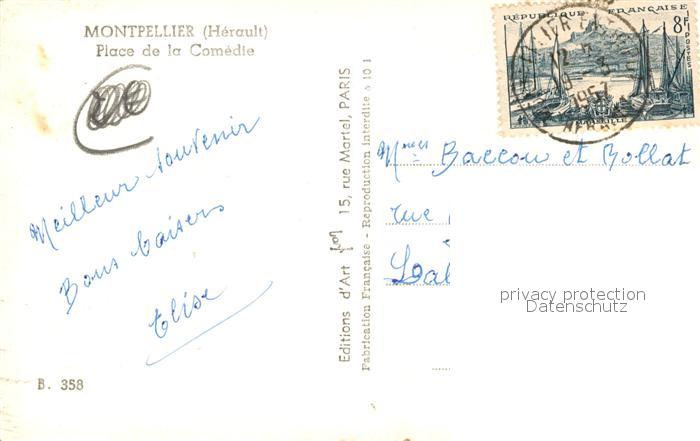 MONTPELLIER (Hérault)
Place de la Comédie
Meilleur souvenir
Bons baisers
Elise
B. 358
Editions d'Art yvon 15, rue Martel, PARIS
Fabrication Française - Reproduction interdite
RÉPUBLIQUE FRANÇAISE
8F
POSTES
MARSEILLE
12 H
9 - 3
1957
HERAULT
Mmes Baccou et Bollat
rue
privacy protection
Datenschutz